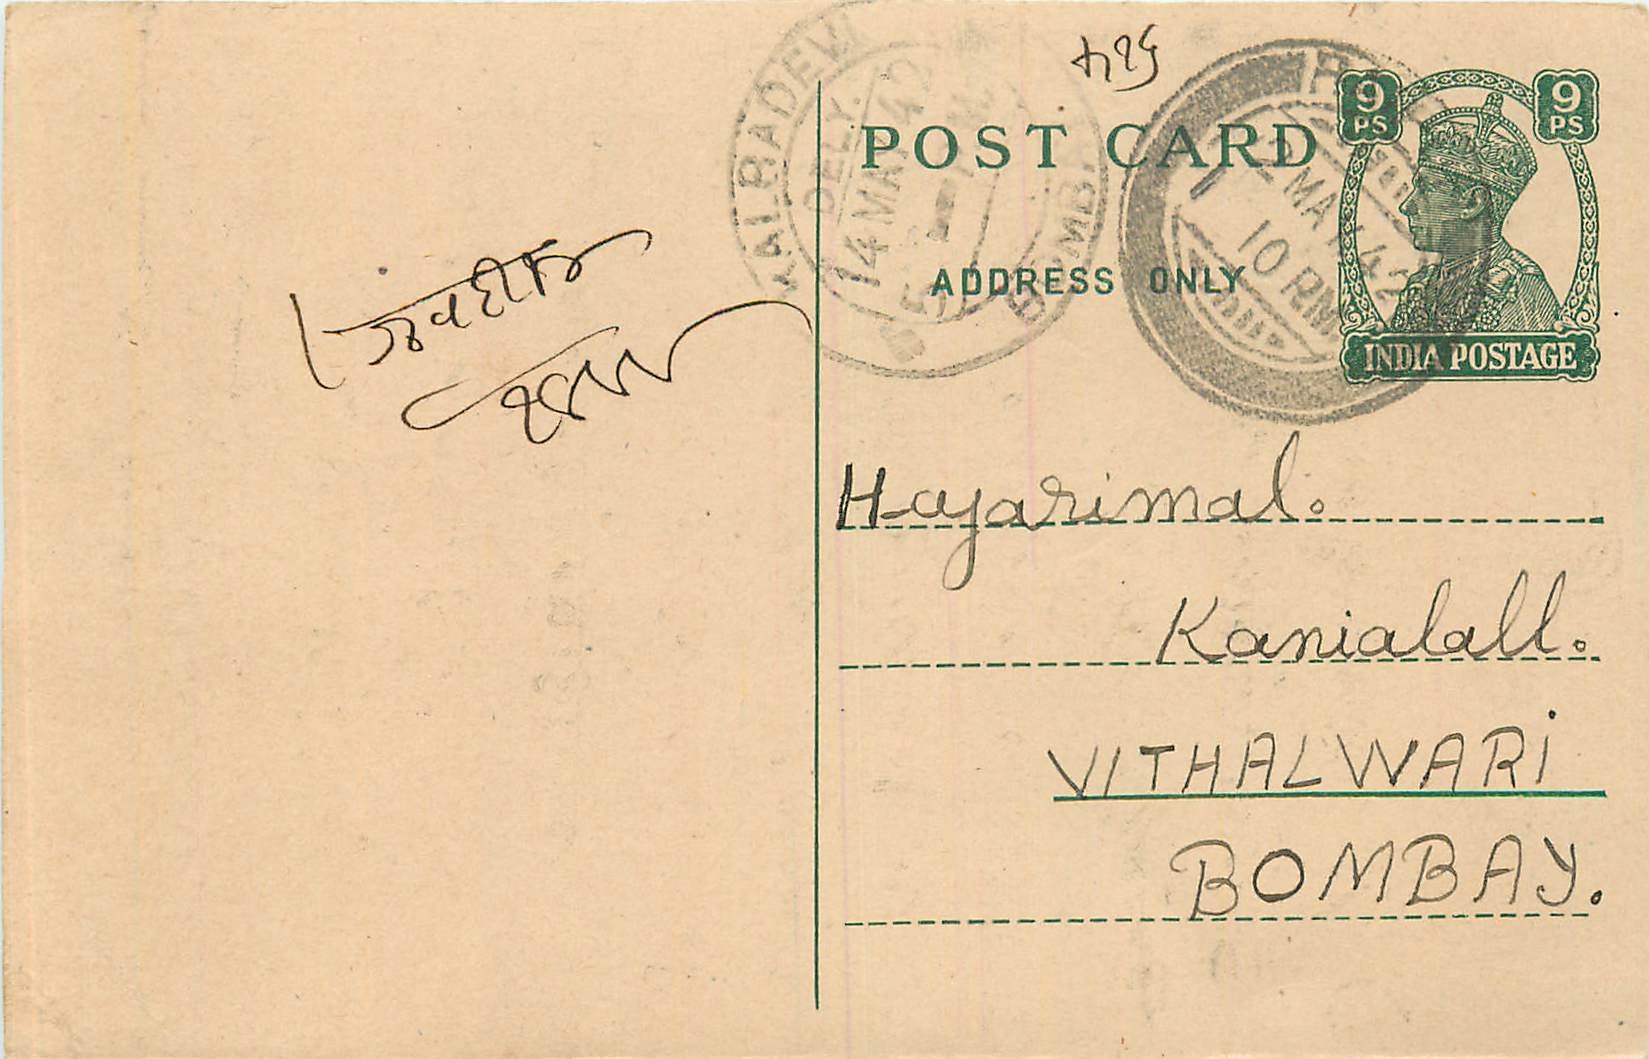 POST CARD
9 PS
9 PS
ADDRESS ONLY
INDIA POSTAGE
KALBADEVI
DELY.
14 MAY 42
BOMBAY
12 MAY 42
10 PM
Hajarimal.
Kanialall.
VITHALWARi
BOMBAY.